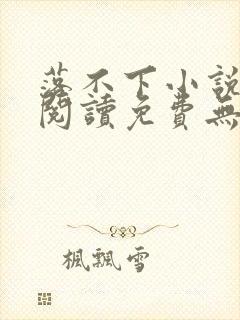 落不下小說
閱讀免費無
楓飄雪